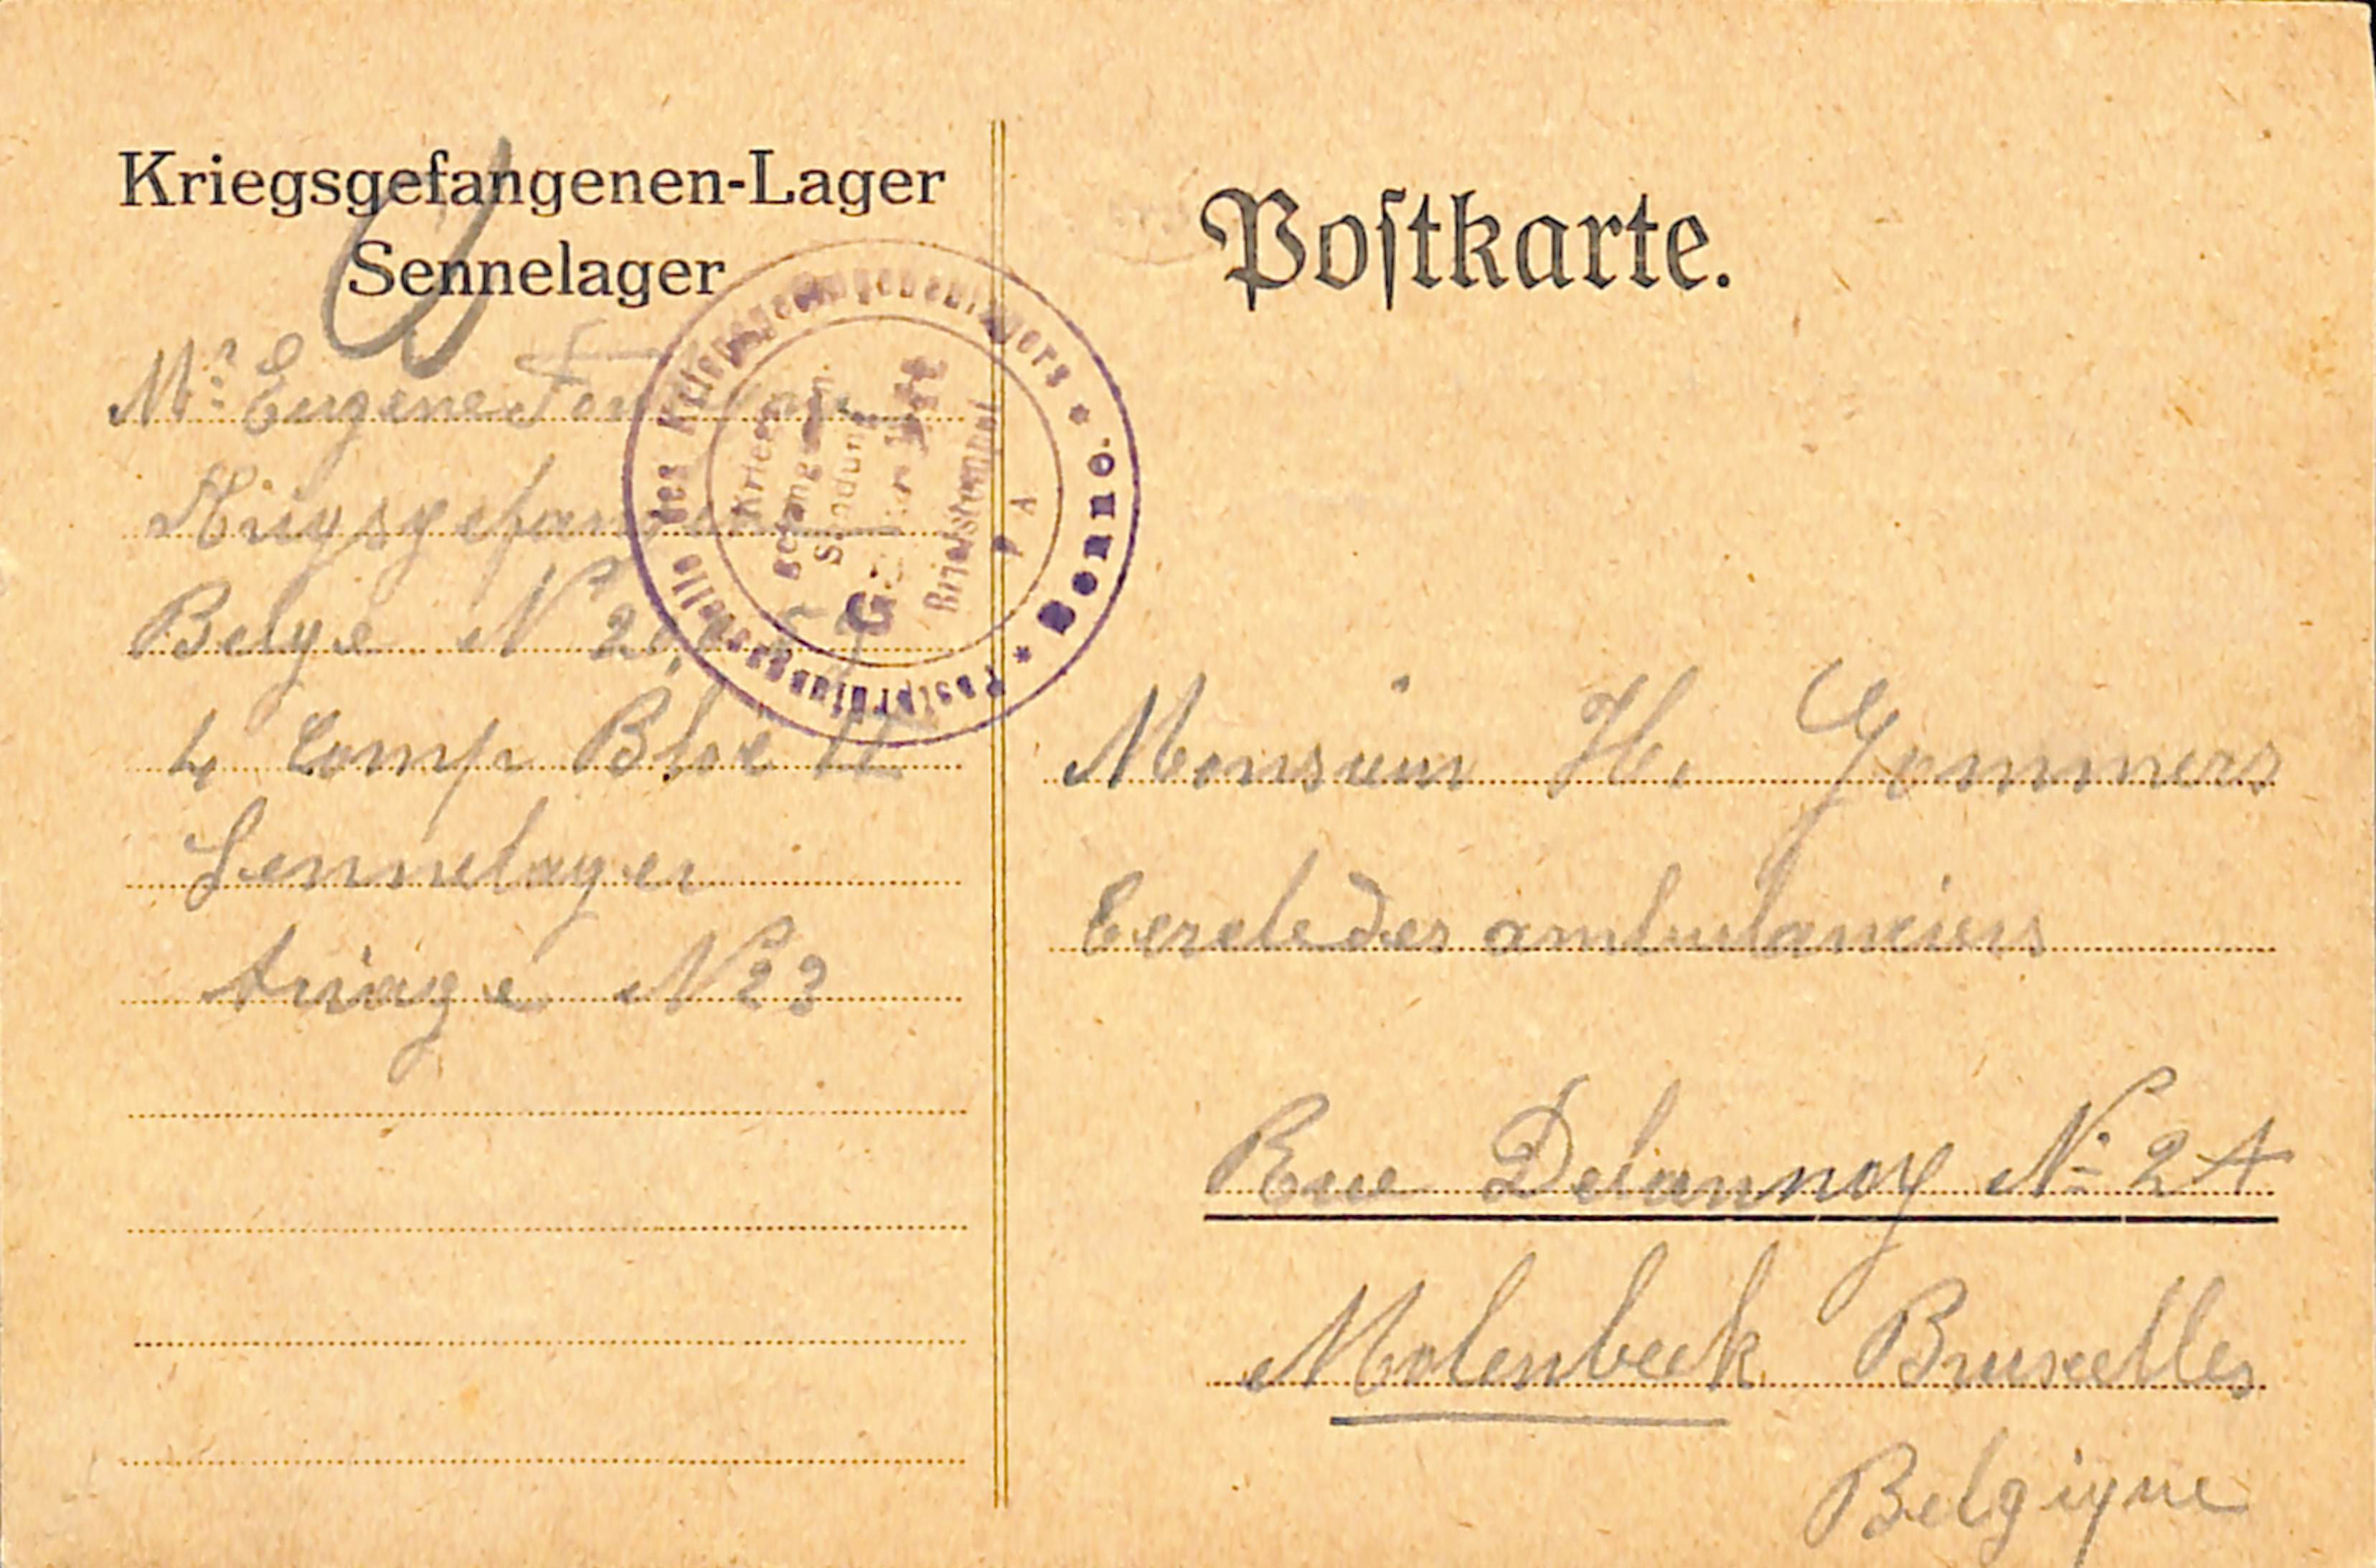 Kriegsgefangenen-Lager
Sennelager
Postkarte.
Mr Eugene
Belge N
4 Comp Bloc II
Sennelager
triage N 23
Postprüfungsstelle des Kriegsgefangenenlagers * Senne. *
Kriegs-
gefangenen-
Sendung
Geprüft
Briefstempel
P A
Monsieur H. Gommers
Cercle des ambulanciers
Rue Delannoy No 24
Molenbeek Bruxelles
Belgique